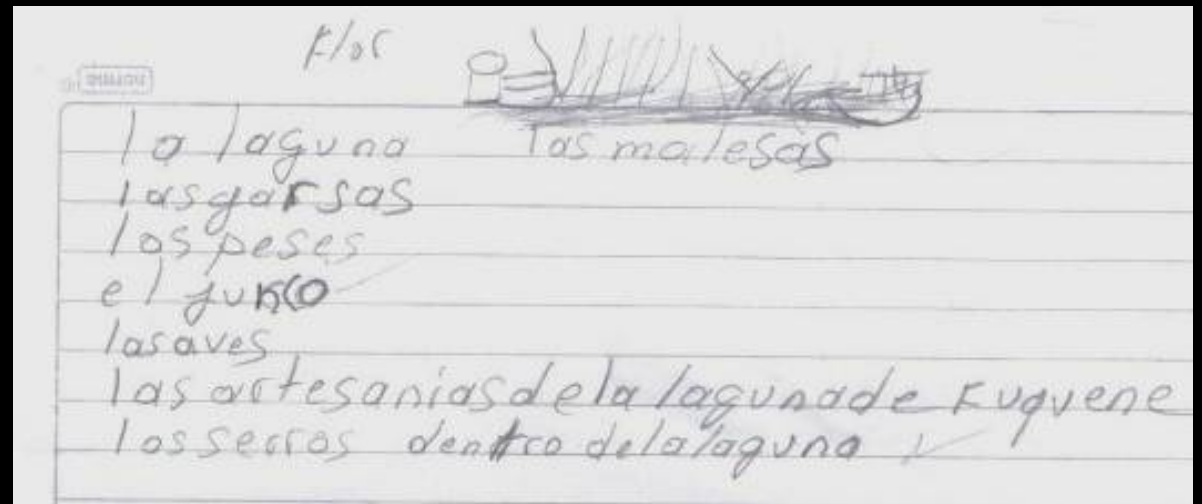 Flor
norma
la laguna las malesas
las garsas
los peses
el junco
las aves
las artesanias de la laguna de Fuquene
los serros dentro de la laguna